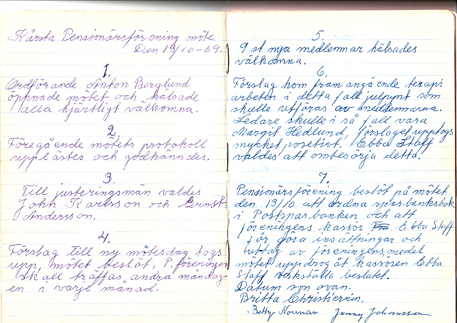 Kårsta Pensionärsförening möte
Den 13/10-69.
1.
Ordförande Anton Berglund
öppnade mötet och hälsade
alla hjärtligt välkomna.
2.
Föregående mötets protokoll
upplästes och godkändes.
3.
Till justeringsmän valdes
John Karlsson och Ernst
Andersson.
4.
Förslag till ny mötesdag togs
upp, mötet beslöt, P. föreningen
skall träffas andra måndagen
en i varje månad.
5.
9 st nya medlemmar hälsades
välkomna.
6.
Förslag kom fram angående terapi
arbeten i detta fall julpynt som
skulle utföras av medlemmarna.
Ledare skulle i så fall vara
Margit Hedlund, förslaget upptogs
mycket positivt. Ebba Staff
valdes att ombesörja detta.
7.
Pensionärsförening beslöt på mötet
den 13/10 att ordna sparbanksbok
i Postsparbanken och att
föreningens kassör Ebba Staff
får göra insättningar och
uttag av föreningens medel
mötet uppdrog åt kassören Ebba
Staff verkställa beslutet.
Datum som ovan.
Britta Christiernin.
Betty Norman Jenny Johansson